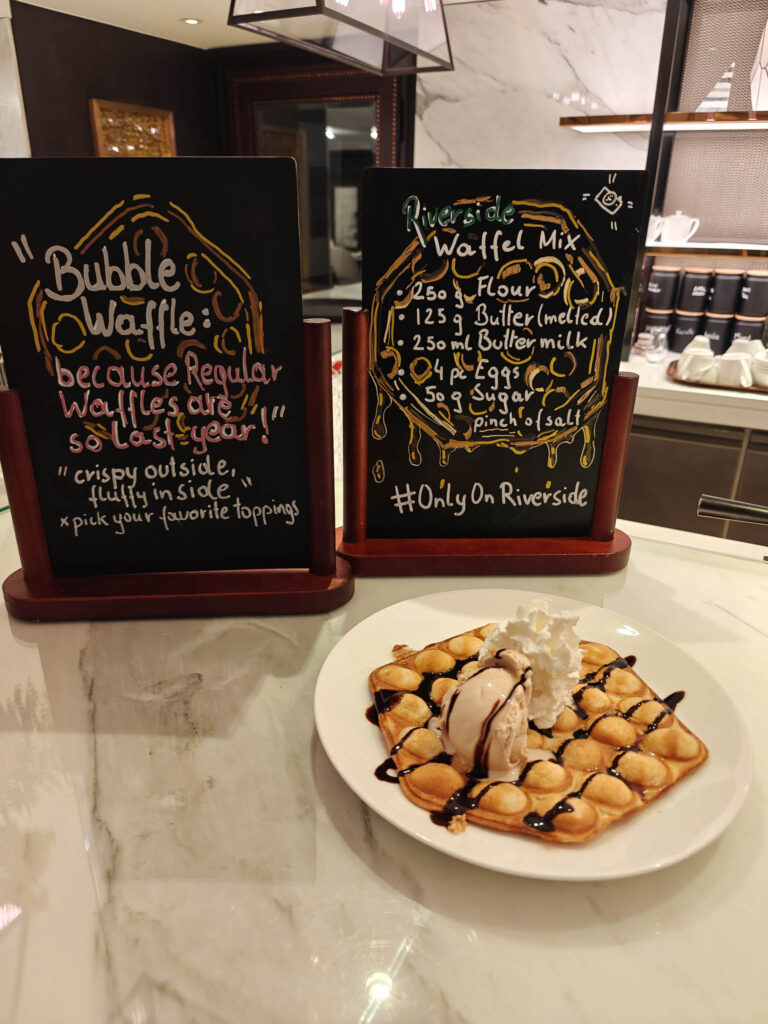 "Bubble
Waffle:
because Regular
Waffles are
so last year!"
"crispy outside,
fluffy inside"
*pick your favorite toppings
Riverside
Waffel Mix
• 250 g Flour
• 125 g Butter (melted)
• 250 ml Butter milk
• 4 pc Eggs
• 50 g Sugar
pinch of salt
#OnlyOnRiverside